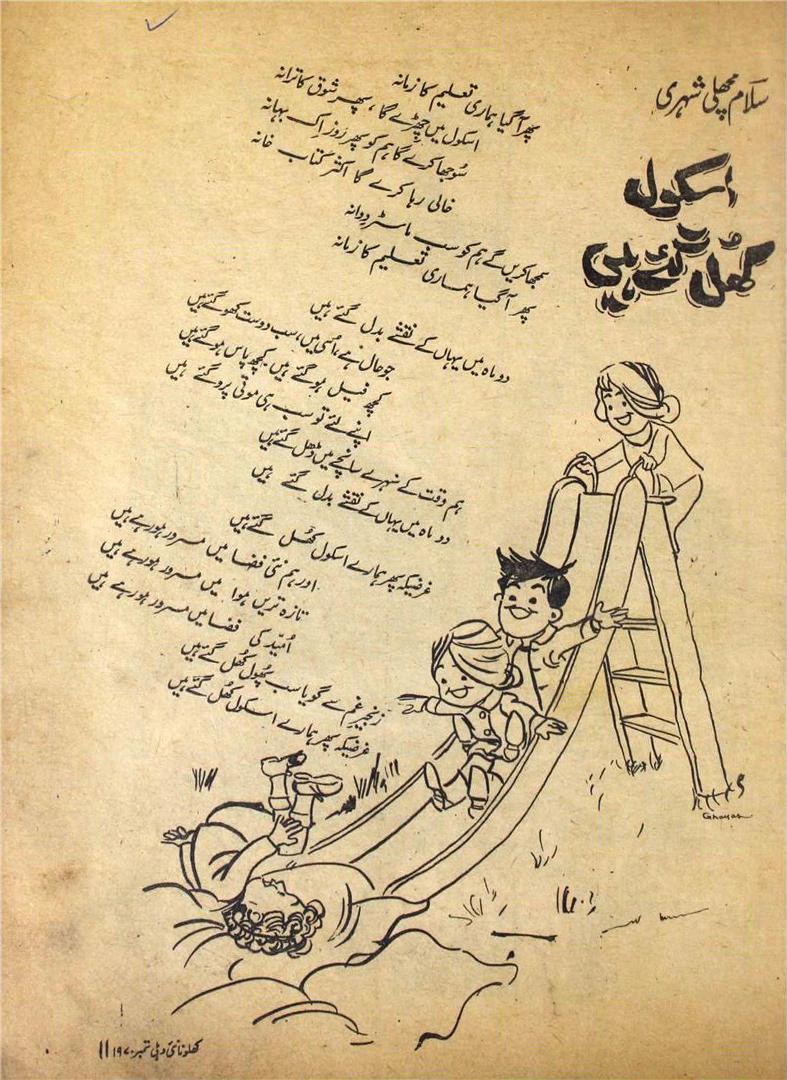 سلام مچھلی شہری
اسکول
کھل گئے ہیں
پھر آ گیا ہماری تعلیم کا زمانہ
اسکول میں چھڑے گا، پھر شوق کا ترانہ
سُوجھا کرے گا ہم کو پھر روز اِک بہانہ
خالی رہا کرے گا اکثر کتاب خانہ
سمجھا کریں گے ہم کو سب ماسٹر دِوانہ
پھر آ گیا ہماری تعلیم کا زمانہ
دو ماہ میں یہاں کے نقشے بدل گئے ہیں
جو حال ہے، اُسی میں، سب دوست کھو گئے ہیں
کچھ فیل ہو گئے ہیں کچھ پاس ہو گئے ہیں
اپنے لئے تو سب ہی موتی پرو گئے ہیں
ہم وقت کے سنہرے سانچے میں ڈھل گئے ہیں
دو ماہ میں یہاں کے نقشے بدل گئے ہیں
غرضیکہ پھر ہمارے اسکول کھُل گئے ہیں
اور ہم نئی فضا میں مسرور ہو رہے ہیں
تازہ ترین ہوا میں مسرور ہو رہے ہیں
اُمید کی فضا میں مسرور ہو رہے ہیں
زنجیرِ غم سے گویا سب پھُول کھُل گئے ہیں
غرضیکہ پھر ہمارے اسکول کھُل گئے ہیں
Ghayas
کھلونا نئی دہلی ستمبر ۱۹۷۰ ۱۱